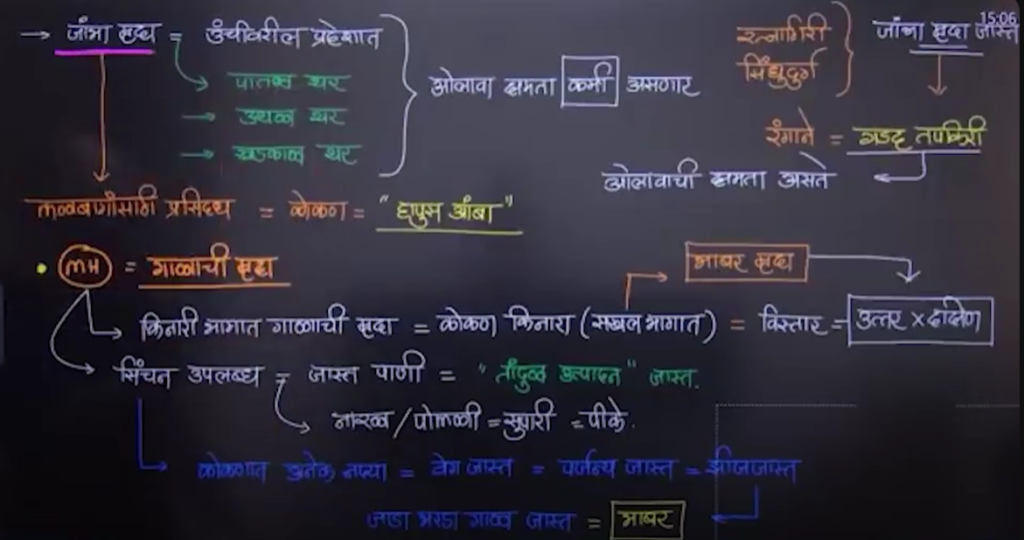 → जांभा मृदा = उंचीवरील प्रदेशात
→ पातळ थर
→ उथळ थर
→ खडकाळ थर
ओलावा क्षमता कमी असणार
रत्नागिरी
सिंधुदुर्ग
जांभा मृदा जास्त
15:06
रंगाने = गडद तपकिरी
ओलावाची क्षमता असते
फळबागांसाठी प्रसिध्द = कोकण = "हापुस आंबा"
• MH = गाळाची मृदा
भाबर मृदा
किनारी भागात गाळाची मृदा = कोकण किनारा (सखल भागात) = विस्तार = उत्तर × दक्षिण
सिंचन उपलब्ध = जास्त पाणी = "तांदुळ उत्पादन" जास्त.
नारळ / पोफळी = सुपारी = पीके.
कोकणात अनेक नद्या = वेग जास्त = पर्जन्य जास्त = झीज जास्त
जाडा भरडा गाळ जास्त = भाबर